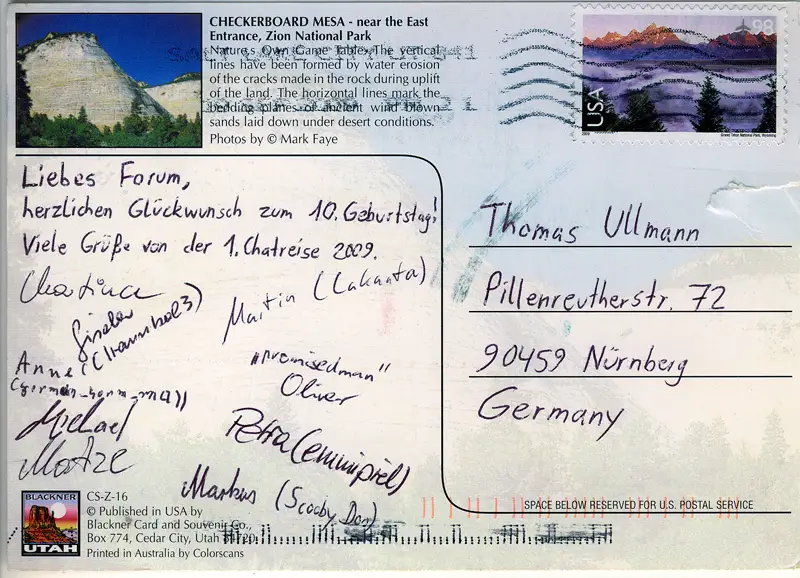 CHECKERBOARD MESA - near the East
Entrance, Zion National Park
Natures Own Game Table. The vertical
lines have been formed by water erosion
of the cracks made in the rock during uplift
of the land. The horizontal lines mark the
bedding planes of ancient wind blown
sands laid down under desert conditions.
Photos by © Mark Faye
98
USA
2009
Grand Teton National Park, Wyoming
Liebes Forum,
herzlichen Glückwunsch zum 10. Geburtstag!
Viele Grüße von der 1. Chatreise 2009.
Martin (Lakanta)
Gisela
Anne
"promisedman"
Oliver
Michael
Petra (emmipiel)
Matze
Markus (Scooby Doo)
Thomas Ullmann
Pillenreutherstr. 72
90459 Nürnberg
Germany
SPACE BELOW RESERVED FOR U.S. POSTAL SERVICE
BLACKNER
UTAH
CS-Z-16
© Published in USA by
Blackner Card and Souvenir Co.,
Box 774, Cedar City, Utah 84720
Printed in Australia by Colorscans